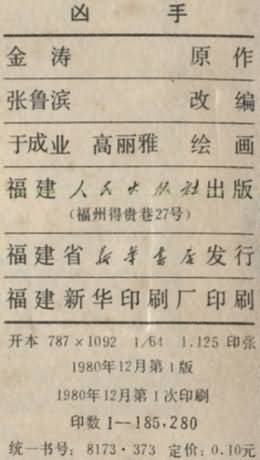 凶 手
金涛 原作
张鲁滨 改编
于成业 高丽雅 绘画
福建人民出版社出版
(福州得贵巷27号)
福建省新华书店发行
福建新华印刷厂印刷
开本 787×1092 1/64 1.125 印张
1980年12月第1版
1980年12月第1次印刷
印数 1—185,280
统一书号: 8173·373 定价: 0.10元